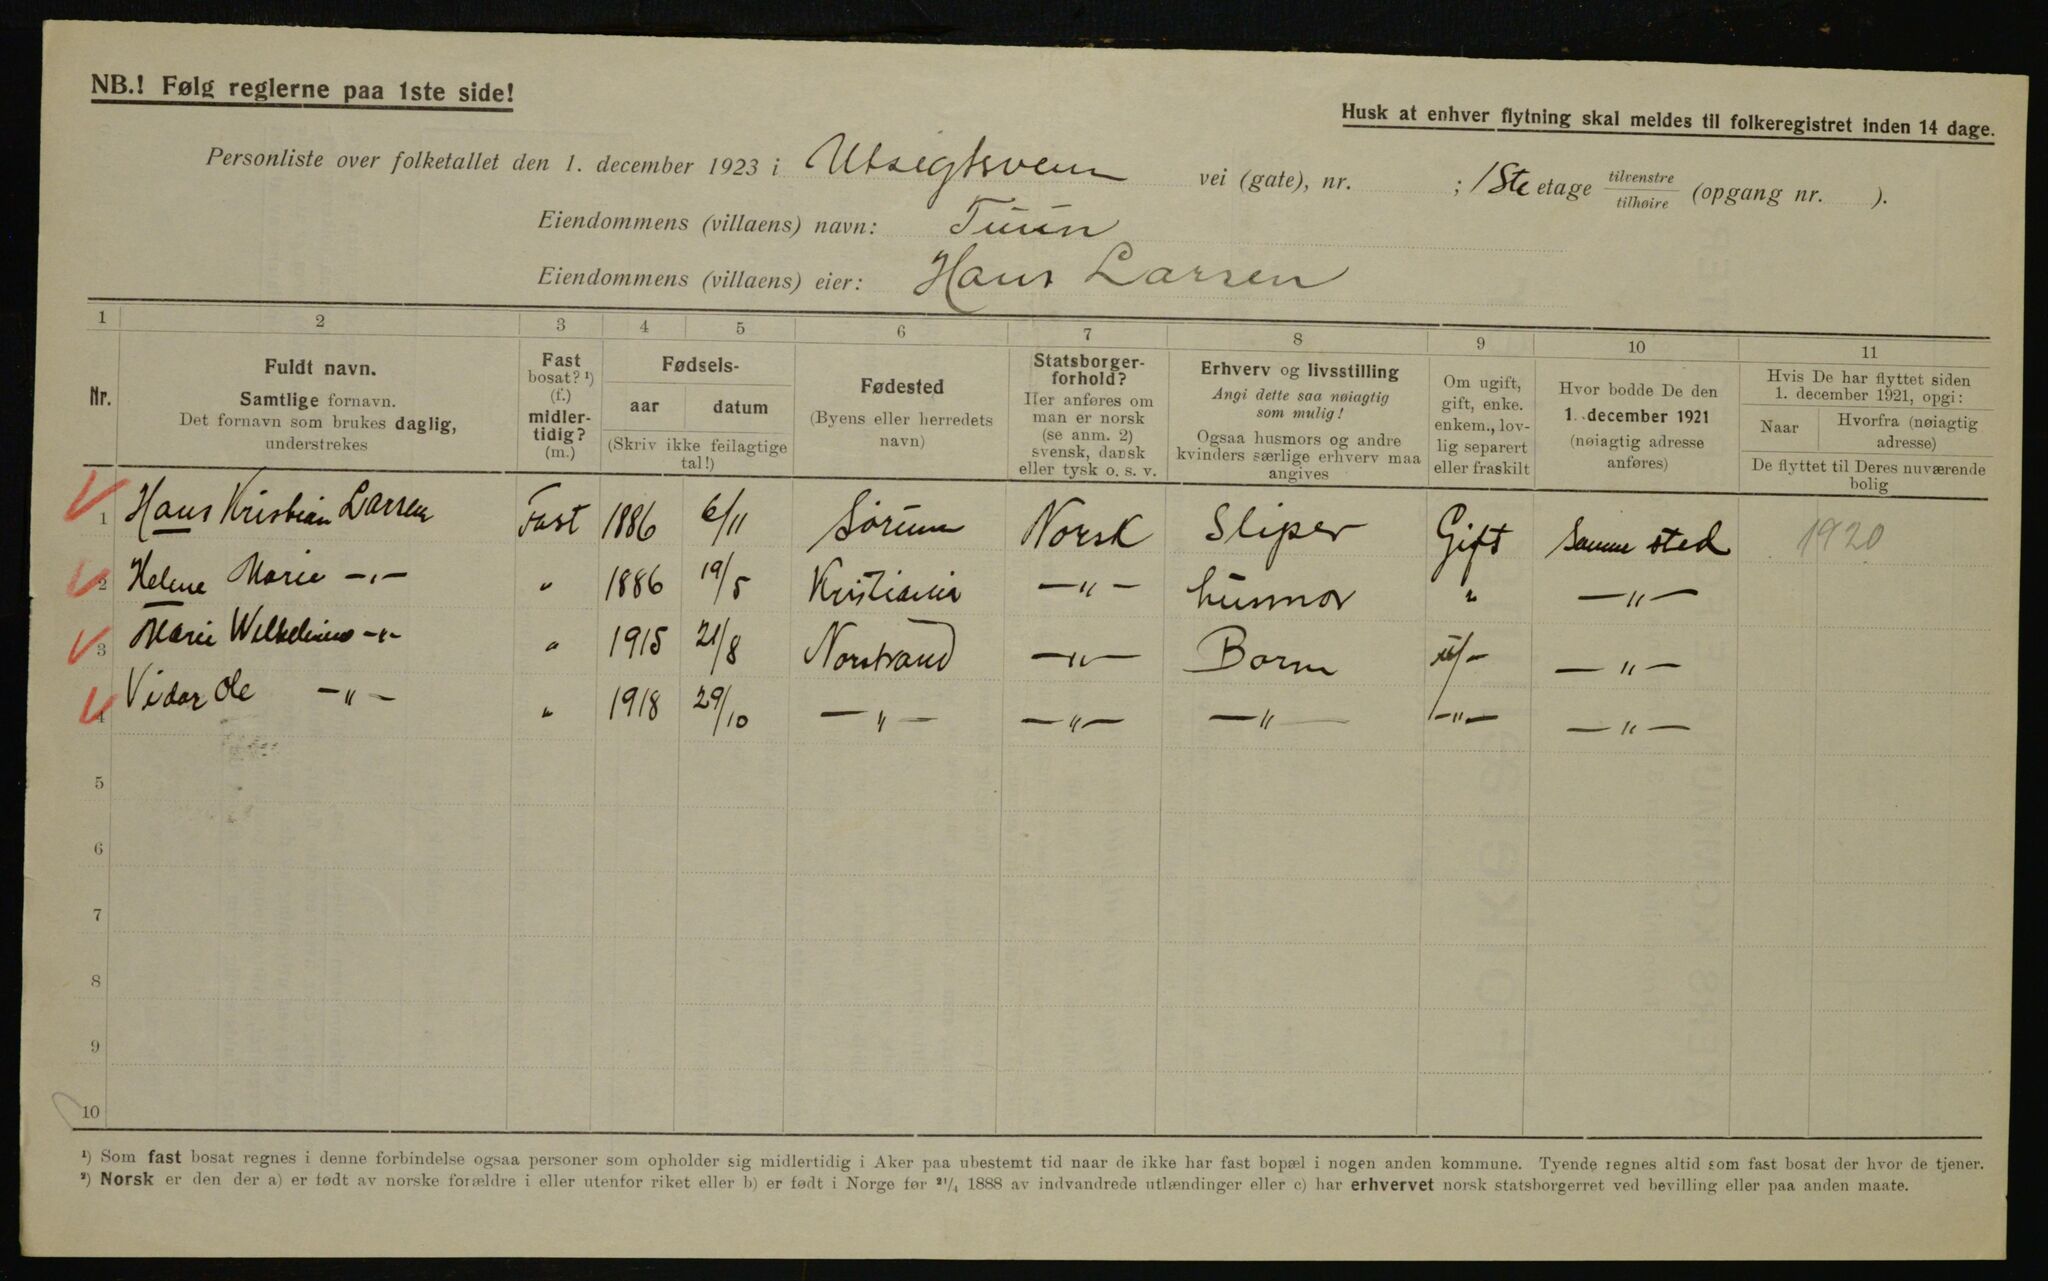 NB.! Følg reglerne paa 1ste side!
Husk at enhver flytning skal meldes til folkeregistret inden 14 dage.
Personliste over folketallet den 1. december 1923 i Utsigtsveien vei (gate), nr. ; 1ste etage tilvenstre/tilhøire (opgang nr. ).
Eiendommens (villaens) navn: Tuun
Eiendommens (villaens) eier: Hans Larsen
1 2 3 4 5 6 7 8 9 10 11
Nr.
Fuldt navn.
Samtlige fornavn.
Det fornavn som brukes daglig,
understrekes
Fast
bosat? ¹)
(f.)
midler-
tidig?
(m.)
Fødsels-
aar datum
(Skriv ikke feilagtige
tal!)
Fødested
(Byens eller herredets
navn)
Statsborger-
forhold?
Her anføres om
man er norsk
(se anm. 2)
svensk, dansk
eller tysk o. s. v.
Erhverv og livsstilling
Angi dette saa nøiagtig
som mulig!
Ogsaa husmors og andre
kvinders særlige erhverv maa
angives
Om ugift,
gift, enke.
enkem., lov-
lig separert
eller fraskilt
Hvor bodde De den
1. december 1921
(nøiagtig adresse
anføres)
Hvis De har flyttet siden
1. december 1921, opgi:
Naar Hvorfra (nøiagtig
adresse)
De flyttet til Deres nuværende
bolig
1 Hans Kristian Larsen Fast 1886 6/11 Sørum Norsk Sliper Gift Samme sted 1920
2 Helene Marie —"— " 1886 19/5 Kristiania —"— husmor " —"—
3 Marie Wilhelmine —"— " 1915 21/8 Norstrand —"— Barn u/- —"—
4 Vidar Ole —"— " 1918 29/10 —"— —"— —"— —"— —"—
5
6
7
8
9
10
¹) Som fast bosat regnes i denne forbindelse ogsaa personer som opholder sig midlertidig i Aker paa ubestemt tid naar de ikke har fast bopæl i nogen anden kommune. Tyende regnes altid som fast bosat der hvor de tjener.
²) Norsk er den der a) er født av norske forældre i eller utenfor riket eller b) er født i Norge før ²¹/₄ 1888 av indvandrede utlændinger eller c) har erhvervet norsk statsborgerret ved bevilling eller paa anden maate.